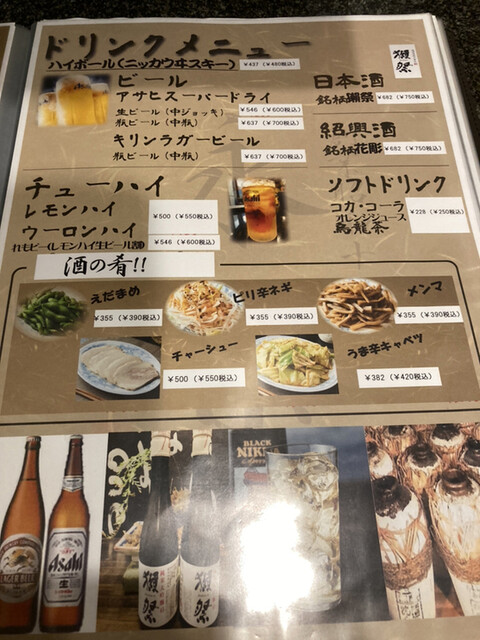 ドリンクメニュー
ハイボール(ニッカウヰスキー) ￥437 (￥480税込)
獺祭
ビール
アサヒスーパードライ
生ビール (中ジョッキ) ￥546 (￥600税込)
瓶ビール (中瓶) ￥637 (￥700税込)
キリンラガービール
瓶ビール (中瓶) ￥637 (￥700税込)
日本酒
銘柄獺祭 ￥682 (￥750税込)
紹興酒
銘柄花彫 ￥682 (￥750税込)
チューハイ
レモンハイ ￥500 (￥550税込)
ウーロンハイ
れもビー(レモンハイ生ビール割) ￥546 (￥600税込)
Asahi
ソフトドリンク
コカ・コーラ
オレンジジュース ￥228 (￥250税込)
烏龍茶
酒の肴!!
えだまめ
￥355 (￥390税込)
ピリ辛ネギ
￥355 (￥390税込)
メンマ
￥355 (￥390税込)
チャーシュー
￥500 (￥550税込)
うま辛キャベツ
￥382 (￥420税込)
LAGER BEER
Asahi
生
獺祭
獺祭
BLACK
NIKKA